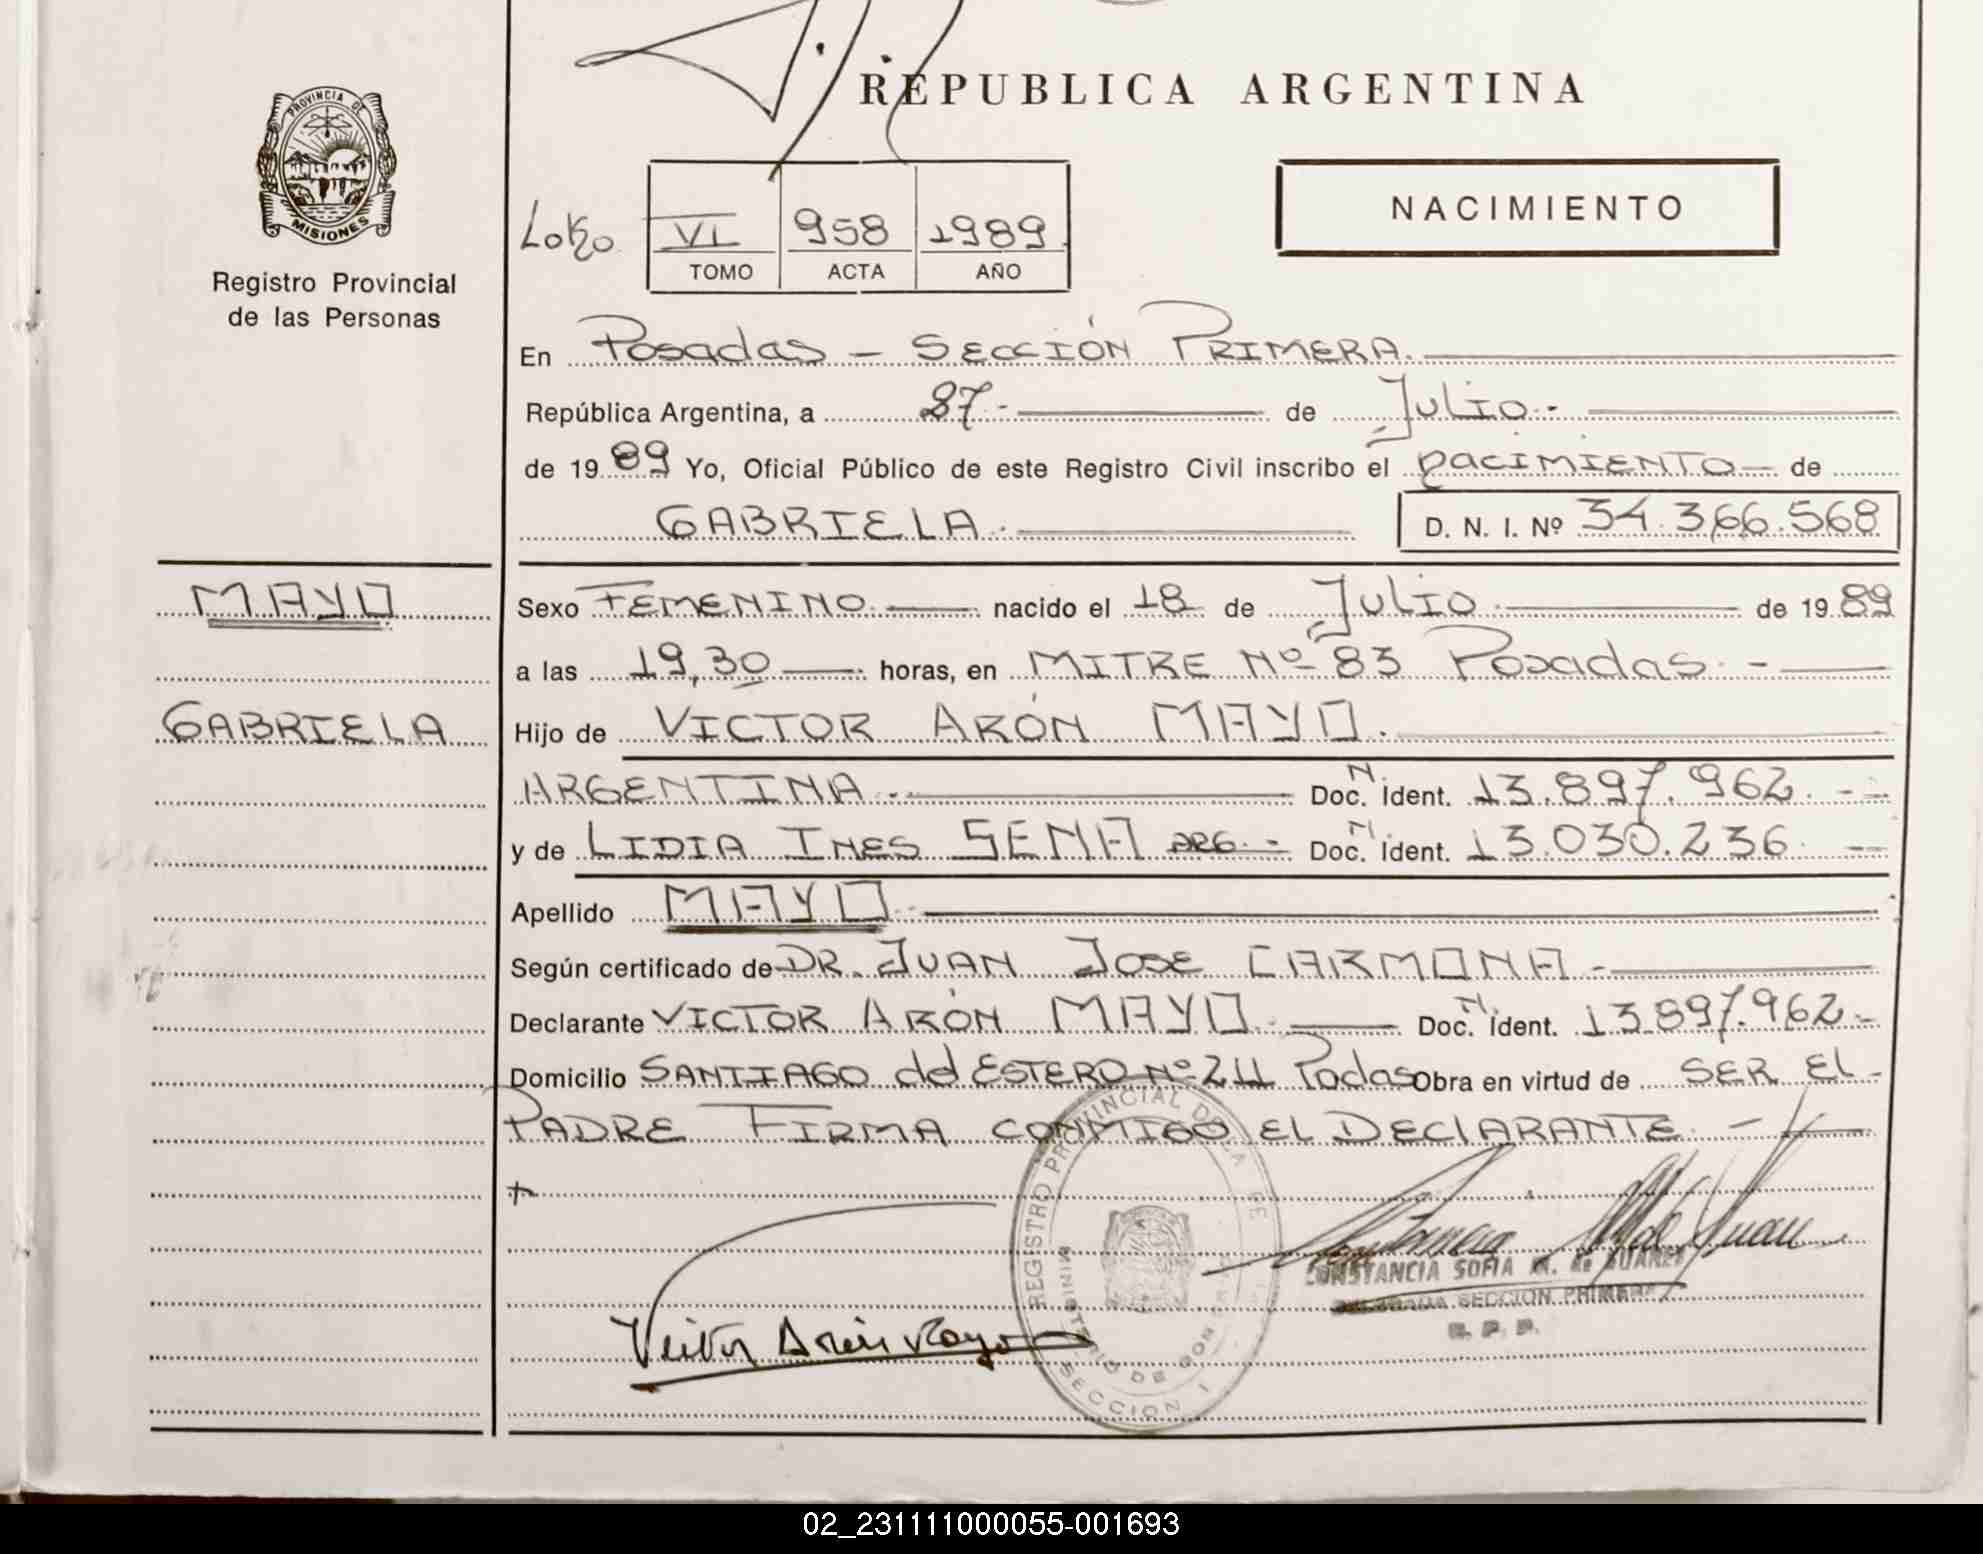 REPUBLICA ARGENTINA
PROVINCIA DE
MISIONES
Registro Provincial
de las Personas
VI 958 1989
TOMO ACTA AÑO
NACIMIENTO
En Posadas - SECCIÓN PRIMERA.
República Argentina, a 27.- de Julio.-
de 1989 Yo, Oficial Público de este Registro Civil inscribo el nacimiento de
GABRIELA. D. N. I. Nº 34.366.568
MAYO
Sexo FEMENINO. nacido el 18 de Julio. de 1989
a las 19,30 horas, en MITRE Nº 83 Posadas.-
GABRIELA
Hijo de VICTOR ARÓN MAYO.
ARGENTINA.- Doc. N. Ident. 13.897.962.--
y de LIDIA INES SENA ARG.- Doc. N. Ident. 13.030.236.--
Apellido MAYO.-
Según certificado de DR. JUAN JOSE CARMONA.-
Declarante VICTOR ARÓN MAYO. Doc. N. Ident. 13.897.962.-
Domicilio SANTIAGO del ESTERO Nº 211 Podas Obra en virtud de SER El
PADRE FIRMA CONMIGO EL DEClARANTE.-
REGISTRO PROVINCIAL DE LA
MINISTERIO DE
SECCION 1
CONSTANCIA SOFIA M. de SUAREZ
SECCION PRIMERA
R. P. P.
02_231111000055-001693